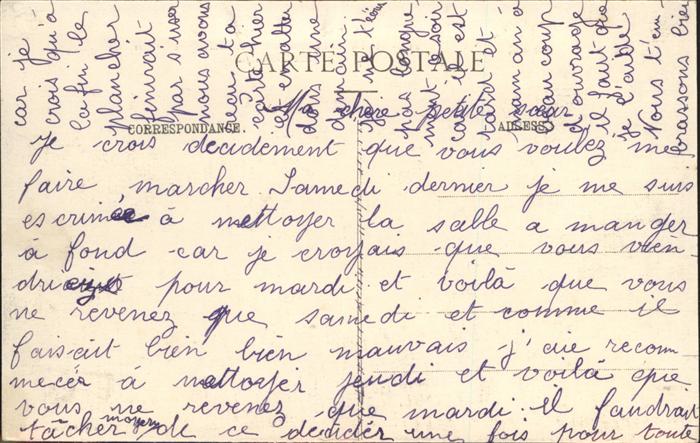 CARTE POSTALE
CORRESPONDANCE.
ADRESSE
Ma chère petite sœur
Je crois decidement que vous voulez me
faire marcher. Samedi dernier je me suis
escrimée à nettoyer la salle a manger
à fond car je croyais que vous vien-
driez pour mardi et voilà que vous
ne revenez que samedi et comme il
faisait bien bien mauvais j'ai recom-
mecér à nettoyer jeudi et voilà que
vous ne revenez que mardi. Il faudrait
tâcher moyen de ce decider une fois pour toute
car je
crois qu'à
la fin le
plancher
finirait
par s'user
nous avons
reçu ta
carte hier
et en attendons une
demain
je ne t'écris
pas longue-
ment ce soir
car il est
tard et
maman a
beaucoup
d'ouvrage
il faut que
je l'aide.
Nous t'em-
brassons bien